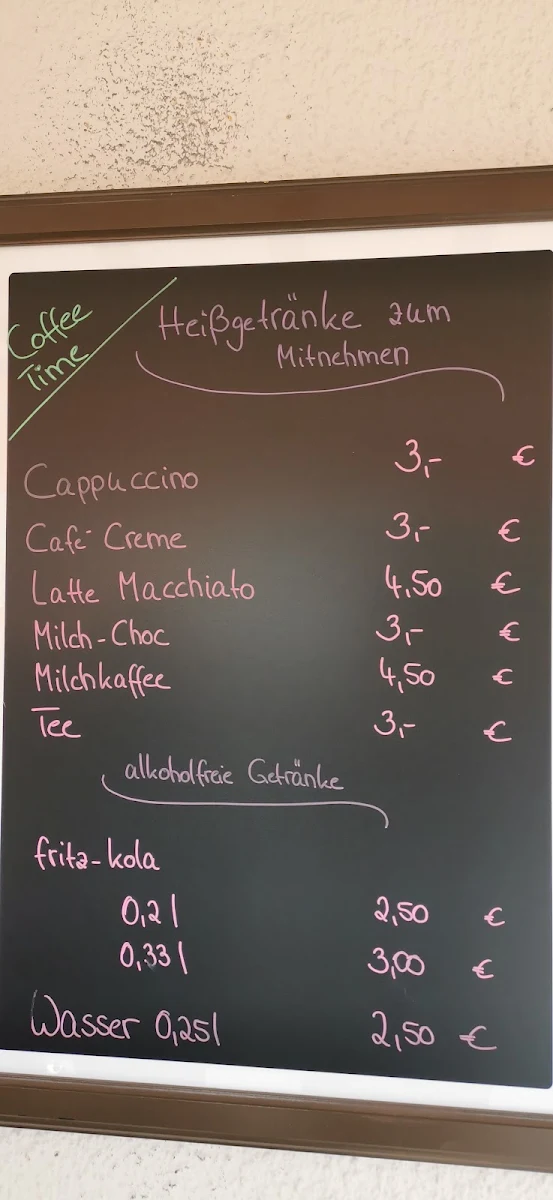 Coffee
Time
Heißgetränke zum
Mitnehmen
Cappuccino 3,- €
Café Creme 3,- €
Latte Macchiato 4,50 €
Milch-Choc 3,- €
Milchkaffee 4,50 €
Tee 3,- €
alkoholfreie Getränke
fritz-kola
0,2 l 2,50 €
0,33 l 3,00 €
Wasser 0,25l 2,50 €